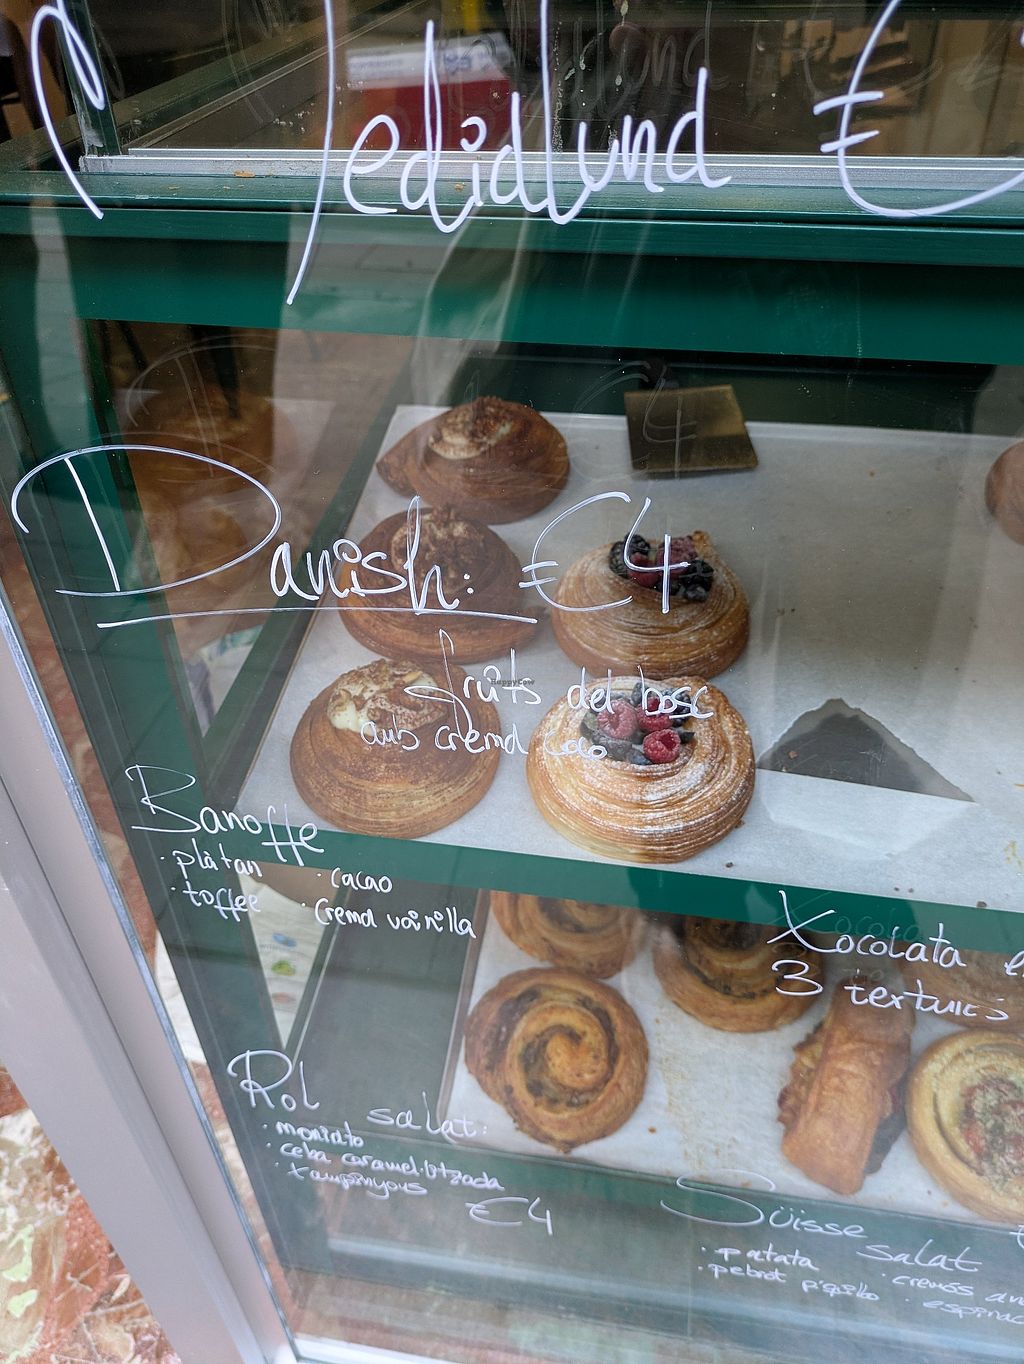 Medialund €
Danish: €4
fruits del bosc
amb crema coco
Banoffe
· plàtan · cacao
· toffee · crema vainilla
Xocolata
3 textures
Rol salat:
· moniato
· ceba caramel·litzada
· xampinyons
€4
Süisse salat
· patata · cremós
· pebrot piquillo
HappyCow